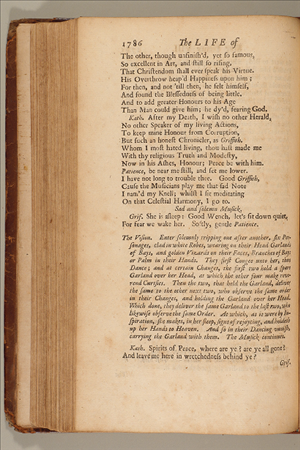 1786 The LIFE of
The other, though unfinish'd, yet so famous,
So excellent in Art, and still so rising,
That Christendom shall ever speak his Virtue.
His Overthrow heap'd Happiness upon him;
For then, and not 'till then, he felt himself,
And found the Blessedness of being little,
And to add greater Honours to his Age
Than Man could give him; he dy'd, fearing God.
Kath. After my Death, I wish no other Herald,
No other Speaker of my living Actions,
To keep mine Honour from Corruption,
But such an honest Chronicler, as Griffith.
Whom I most hated living, thou hast made me
With thy religious Truth and Modesty,
Now in his Ashes, Honour; Peace be with him.
Patience, be near me still, and set me lower.
I have not long to trouble thee. Good Griffith,
Cause the Musicians play me that sad Note
I nam'd my Knell; whilst I sit meditating
On that Celestial Harmony, I go to.
Sad and solemn Musick.
Grif. She is asleep: Good Wench, let's sit down quiet,
For fear we wake her. Softly, gentle Patience.
The Vision. Enter solemnly tripping one after another, six Per-
sonages, clad in white Robes, wearing on their Head Garlands
of Bays, and golden Vizards on their Faces, Branches of Bays
or Palm in their Hands. They first Congee unto her, then
Dance; and at certain Changes, the first two hold a spare
Garland over her Head, at which the other four make reve-
rend Curtsies. Then the two, that held the Garland, deliver
the same to the other next two, who observe the same order
in their Changes, and holding the Garland over her Head.
Which done, they deliver the same Garland to the last two, who
likewise observe the same Order. At which, as it were by In-
spiration, she makes, in her sleep, signs of rejoycing, and holdeth
up her Hands to Heaven. And so in their Dancing vanish,
carrying the Garland with them. The Musick continues.
Kath. Spirits of Peace, where are ye? are ye all gone?
And leave me here in wretchedness behind ye?
Grif.